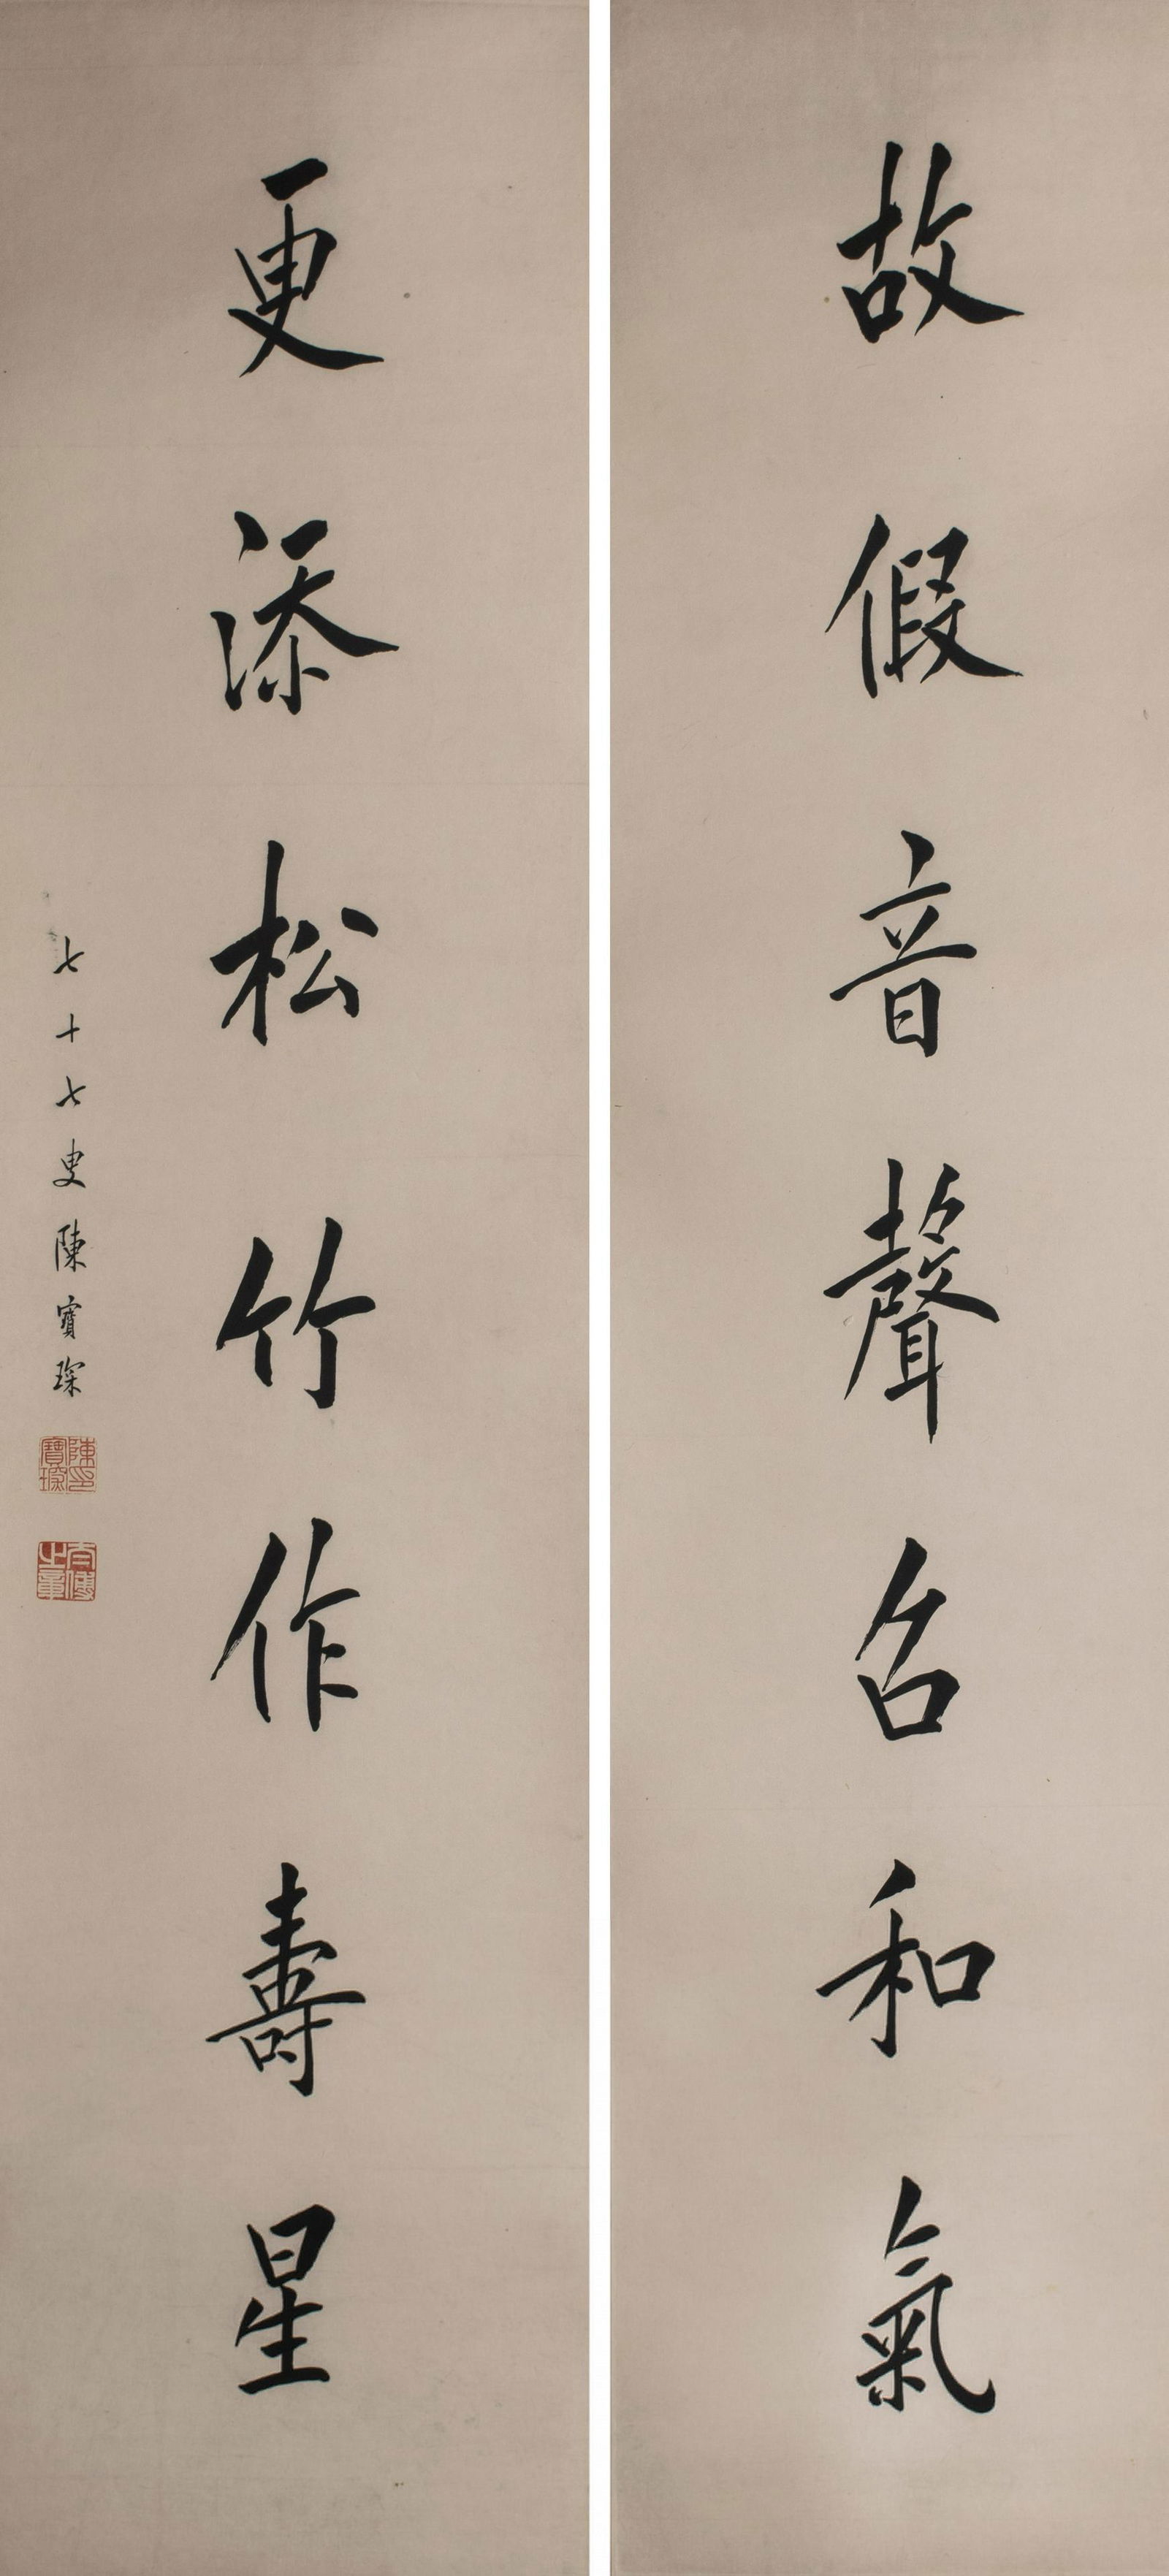 故假音聲召和氣
更添松竹作壽星
七十七叟陳寶琛
陳寶琛印
太傅之章